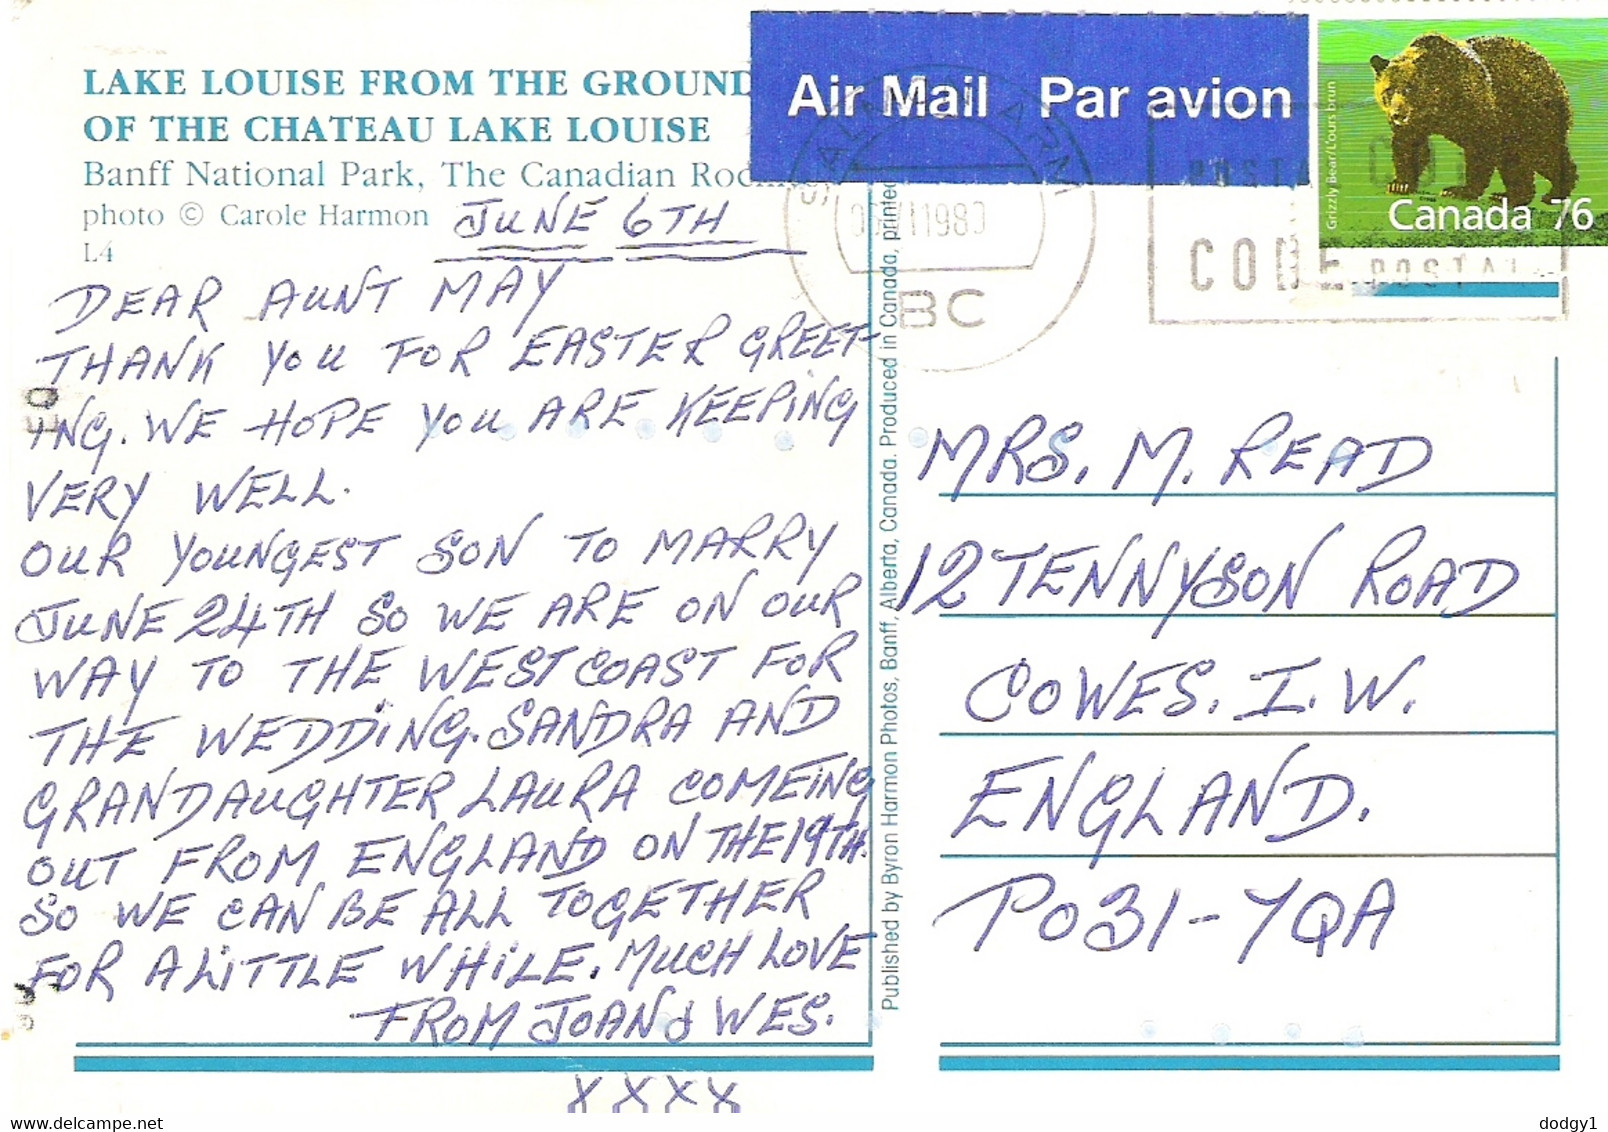 LAKE LOUISE FROM THE GROUND
OF THE CHATEAU LAKE LOUISE
Banff National Park, The Canadian
photo © Carole Harmon
L4
JUNE 6TH
DEAR AUNT MAY
THANK YOU FOR EASTER GREET-
ING. WE HOPE YOU ARE KEEPING
VERY WELL.
OUR YOUNGEST SON TO MARRY
JUNE 24TH SO WE ARE ON OUR
WAY TO THE WEST COAST FOR
THE WEDDING. SANDRA AND
GRANDAUGHTER LAURA COMEING
OUT FROM ENGLAND ON THE 19TH.
SO WE CAN BE ALL TOGETHER
FOR A LITTLE WHILE. MUCH LOVE
FROM JOAN & WES.
XXXX
Published by Byron Harmon Photos, Banff, Alberta, Canada. Produced in Canada, printed
Air Mail Par avion
SALMON ARM
BC
POSTAL CODE
CODE POSTAL
Grizzly Bear/L'ours brun
Canada 76
MRS. M. READ
12 TENNYSON ROAD
COWES. I.W.
ENGLAND.
PO31-7QA
dodgy1